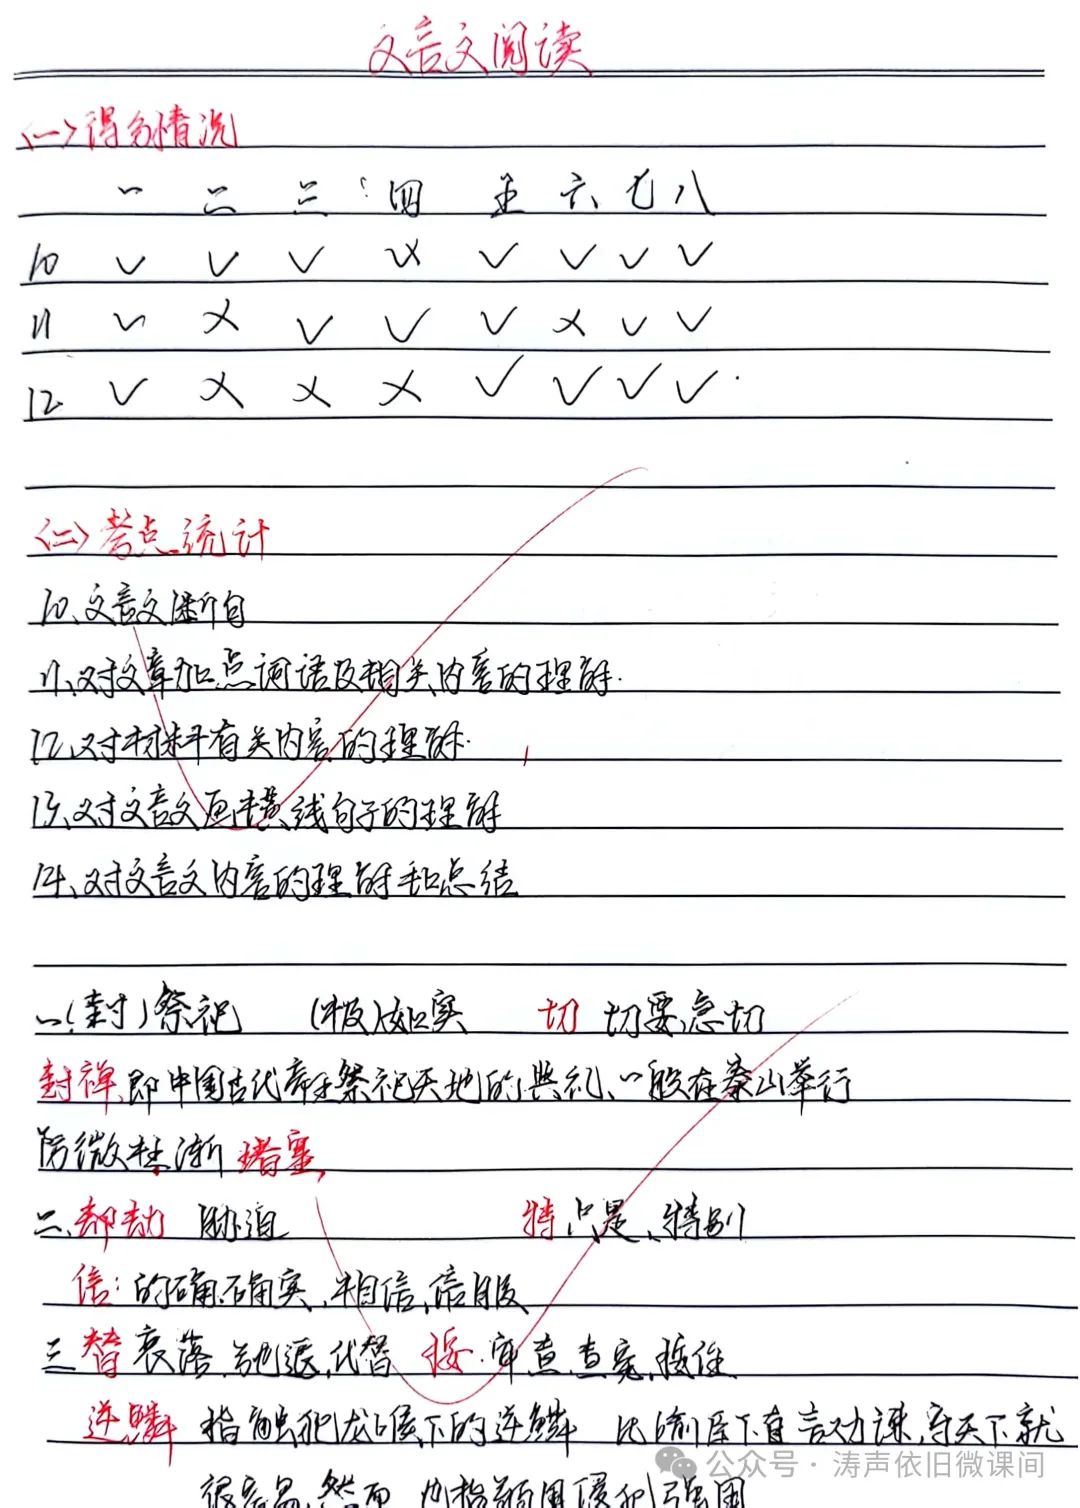 文言文阅读
<一>得分情况
一 二 三 四 五 六 七 八
10 ✓ ✓ ✓ ✓ ✓ ✓ ✓
11 ✓ × ✓ ✓ ✓ × ✓ ✓
12 ✓ × × × ✓ ✓ ✓ ✓
<二>考点统计
10、文言文断句
11、对文章加点词语及相关内容的理解.
12、对材料有关内容的理解.
13、对文言文画横线句子的理解
14、对文言文内容的理解和总结
一、(封)祭祀 (报)如实 切 切要、急切
封禅、即中国古代帝王祭祀天地的典礼、一般在泰山举行
防微杜渐 堵塞
二、却劫 胁迫 特 只是、特别
信:的确、确实、相信、信服
三 替 衰落、弛退、代替 按 审查、查究、按住
逆鳞 指触犯龙喉下的逆鳞 比喻臣下有言劝谏,守天下就
很容易,然而 也指弱国侵犯强国
公众号 · 涛声依旧微课间